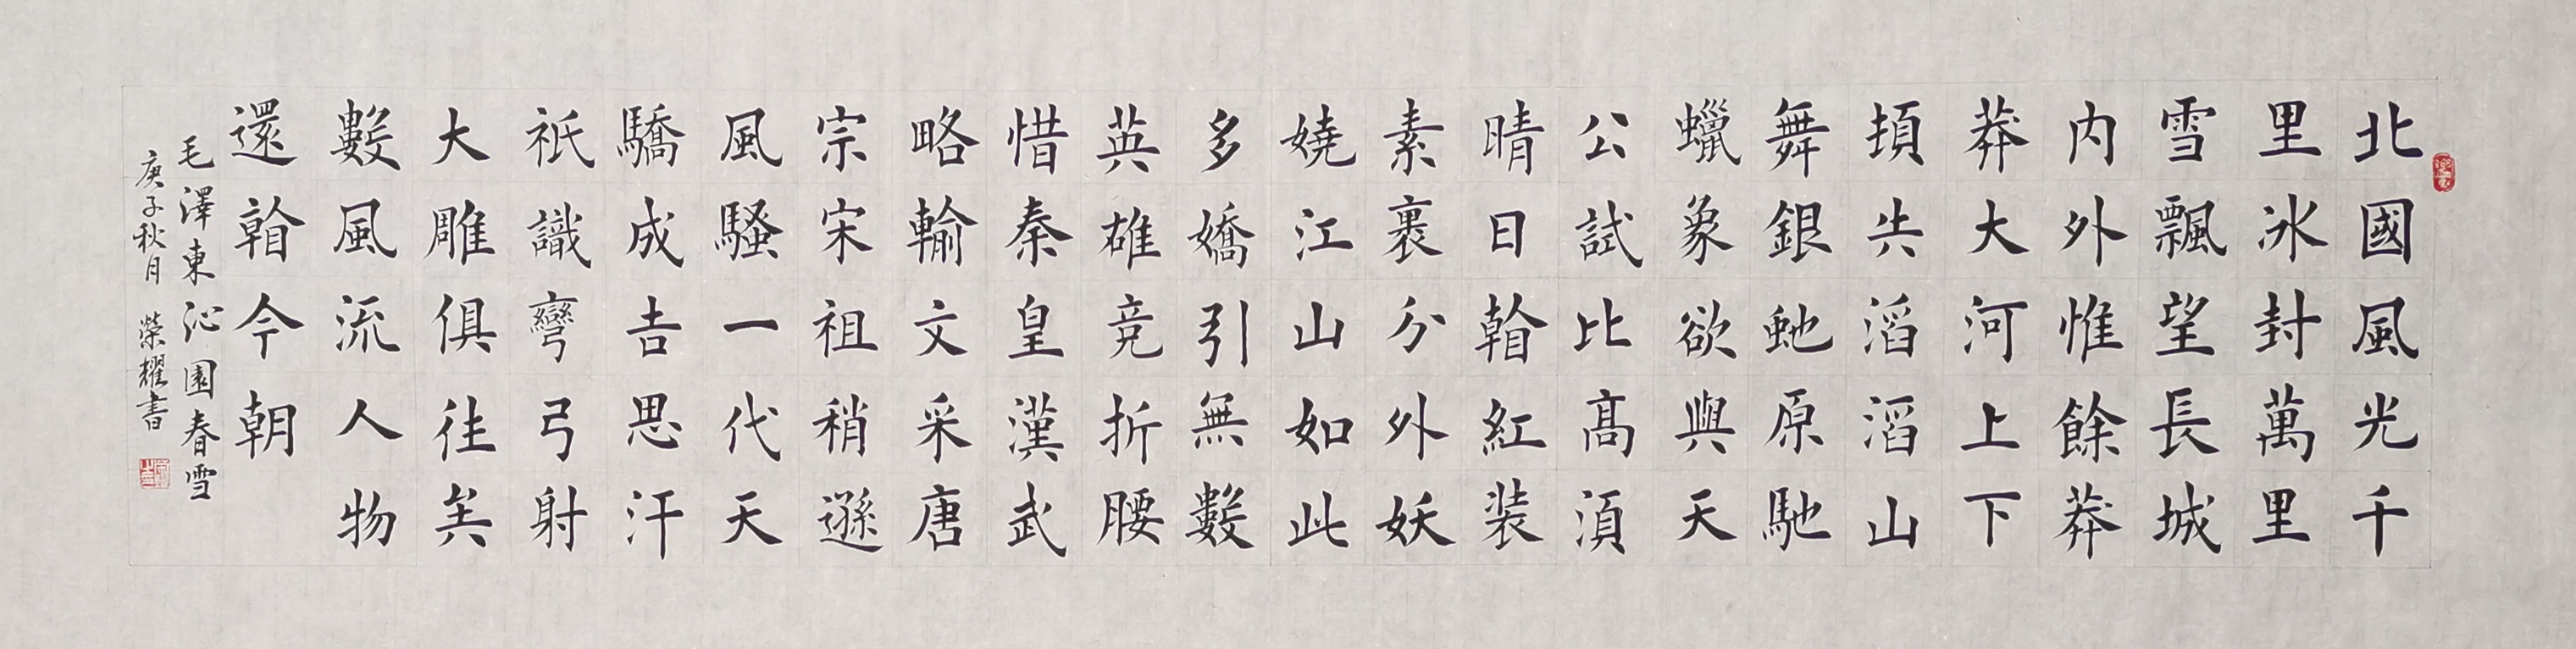 北國風光千
里冰封萬里
雪飄望長城
内外惟餘莽
莽大河上下
頓失滔滔山
舞銀虵原馳
蠟象欲與天
公試比髙須
晴日看紅装
素裹分外妖
嬈江山如此
多嬌引無數
英雄竞折腰
惜秦皇漢武
略輸文采唐
宗宋祖稍遜
風騷一代天
驕成吉思汗
祇識彎弓射
大雕俱往矣
數風流人物
還看今朝
毛澤東沁園春雪
庚子秋月 榮耀書